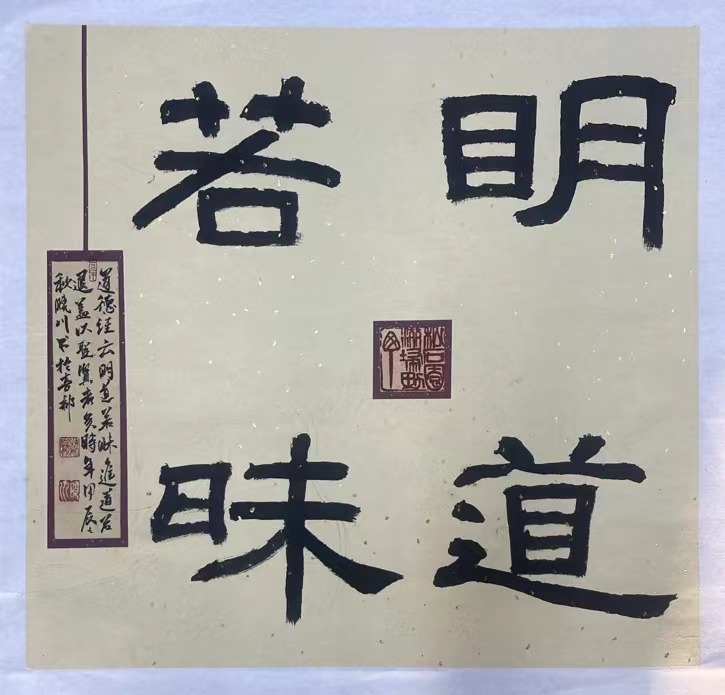 明道
若昧
道德经云明道若昧進道若
退盖以聖賢者矣時年甲辰之
秋曉川书於春都